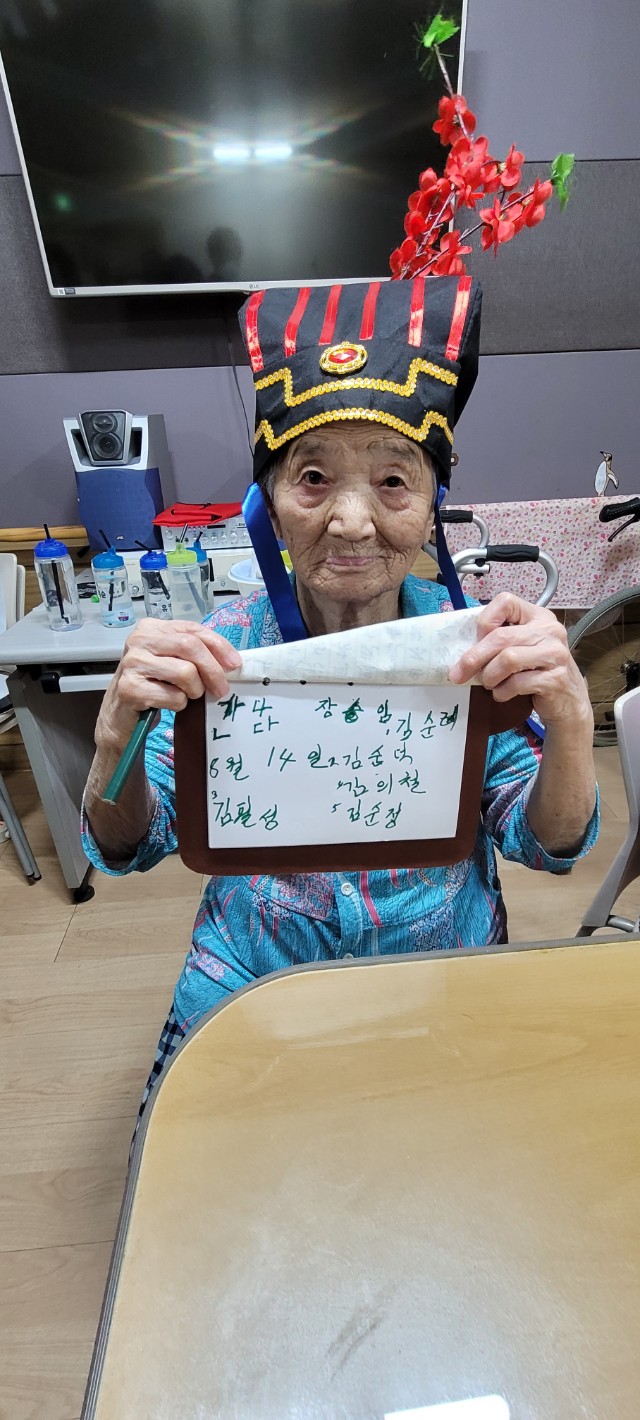 가나 장순임, 김순례
다
8월 14일 2김순덕
4김의철
3김필성 5김순정